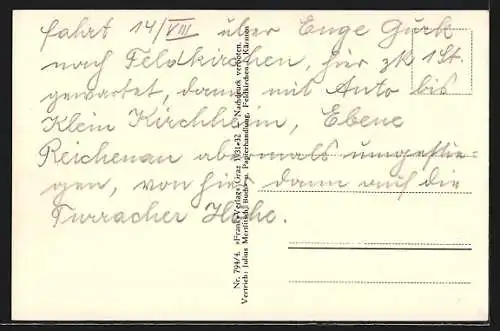 Fahrt 14/VIII über Enge Gurk
nach Feldkirchen, hier zk 1 St.
gewartet, dann mit Auto bis
Klein Kirchheim, Ebene
Reichenau abermals umgestie-
gen, von hier dann auf die
Turracher Höhe.
Nr. 794/4. »Frank«-Verlag, Graz 1931-32 L. Nachdruck verboten.
Vertrieb: Julius Merlitsch, Buch- u. Papierhandlung, Feldkirchen, Kärnten